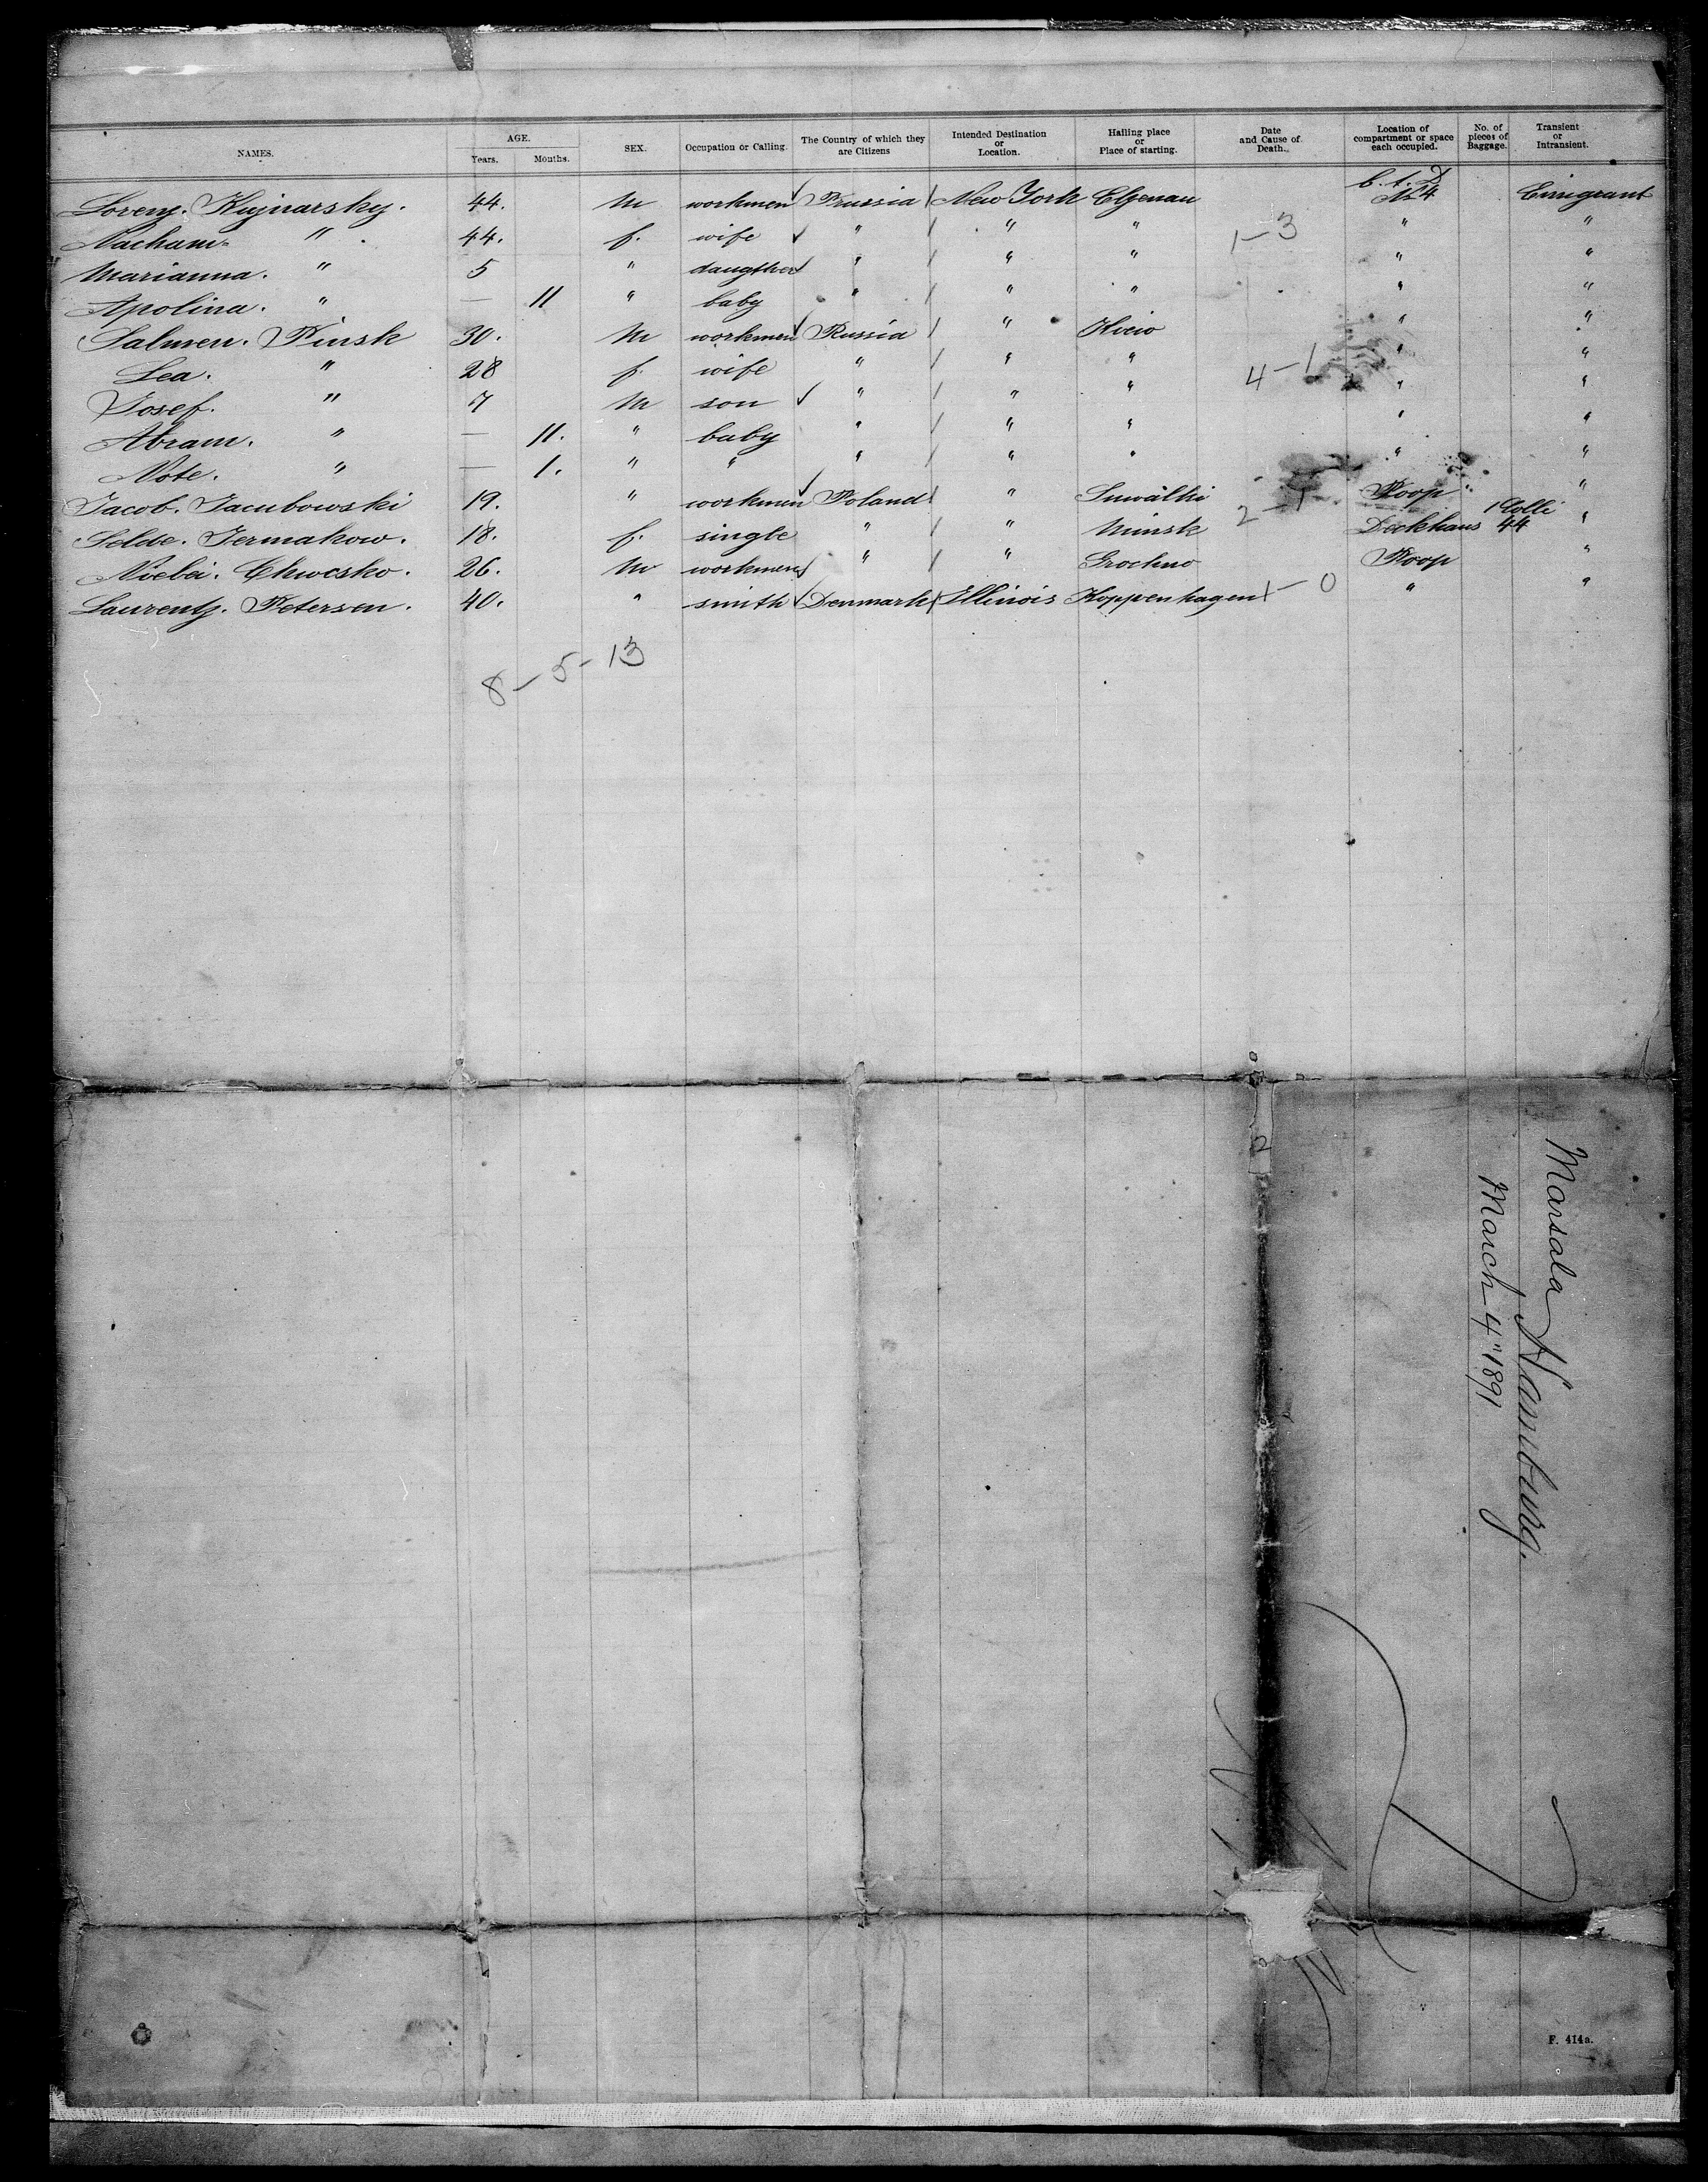 NAMES. AGE. Years. Months. SEX. Occupation or Calling. The Country of which they are Citizens Intended Destination or Location. Hailing place or Place of starting. Date and Cause of Death. Location of compartment or space each occupied. No. of pieces of Baggage. Transient or Intransient.
Lorenz. Kujnarsky. 44. M workmen Prussia New York Elgenau No 4 Emigrant
Nacham. " 44. f. wife " " " 1-3 " "
Marianna. " 5 " daugther " " " " "
Apolina. " — 11 " baby " " " " "
Salmen. Pinsk 30. M workmen Russia " " "
Lea. " 28 f. wife " " " 4-1 " "
Josef. " 7 M son " " " " "
Abram. " — 11. " baby " " " " "
Note. " — 1. " " " " " " "
Jacob. Jacubowski 19. " workmen Poland " Suwalki 2-1 Poop "
Selde. Jermakow. 18. f. single " " Minsk Deckhaus 1 Colli 44 "
26. M workmen " " Grochno Poop "
Laurentz. Petersen. 40. " smith Denmark Illinois Koppenhagen 1-0 " "
8-5-13
Marsala Hamburg.
March 4" 1891
F. 414a.